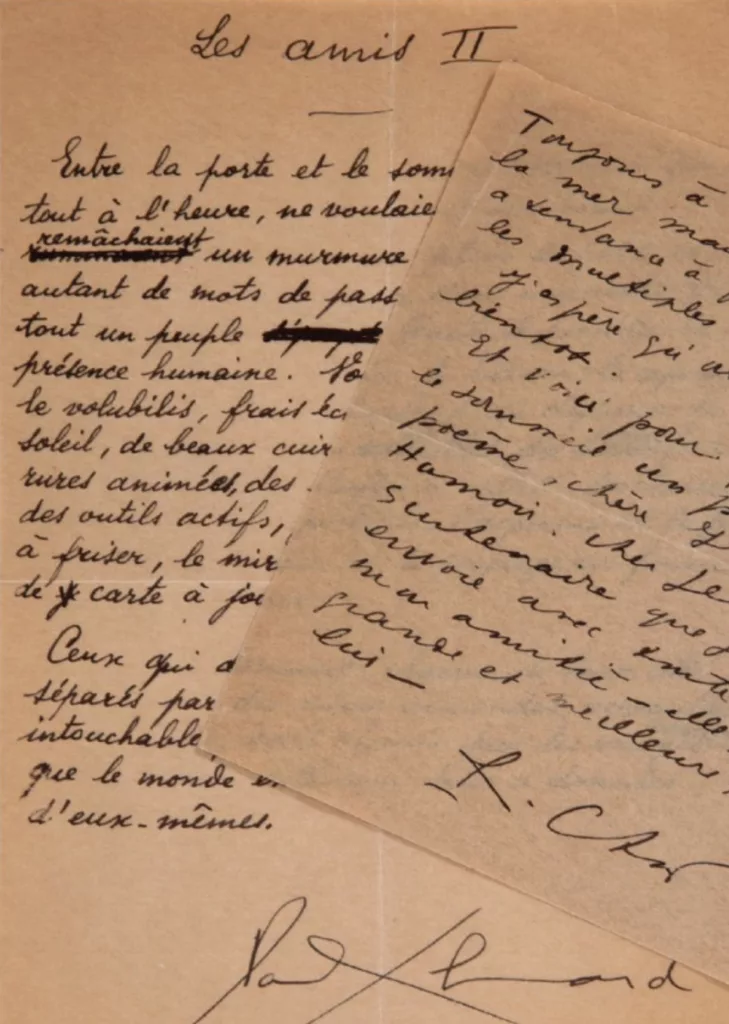 Les amis II
Entre la porte et le som
tout à l'heure, ne voulaie
remâchaient
un murmure
autant de mots de pass
tout un peuple
présence humaine. Vo
le volubilis, frais éc
soleil, de beaux cuir
rures animées, des
des outils actifs,
à friser, le mir
de carte à jou
Ceux qui d
séparés par
intouchable
que le monde en
d'eux-mêmes.
Paul Eluard
Toujours à
la mer mau
a tendance à
les multiples
j'espère qu'a
bientôt.
Et voici pour
le sommeil un p
poème, chère
Humoir. cher Le
Centenaire que
envoie avec toute
mon amitié - elle
grande et meilleure
lui -
R. Char